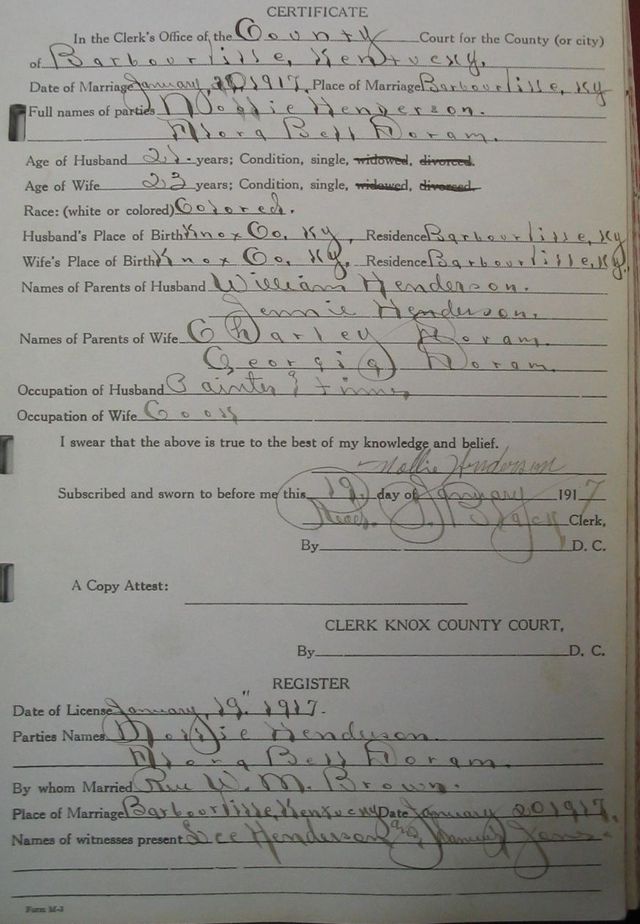 CERTIFICATE
In the Clerk's Office of the County Court for the County (or city)
of Barbourville, Kentucky.
Date of Marriage January, 20 1917. Place of Marriage Barbourville, Ky
Full names of parties Mollie Henderson.
Flora Bell Doram.
Age of Husband 21. years; Condition, single, widowed, divorced.
Age of Wife 23 years; Condition, single, widowed, divorced.
Race: (white or colored) Colored.
Husband's Place of Birth Knox Co, Ky, Residence Barbourville, Ky
Wife's Place of Birth Knox Co, Ky. Residence Barbourville, Ky.
Names of Parents of Husband William Henderson.
Jennie Henderson.
Names of Parents of Wife Charley Doram.
Georgia Doram.
Occupation of Husband Painter &
Occupation of Wife Cook
I swear that the above is true to the best of my knowledge and belief.
Mollie Henderson
Subscribed and sworn to before me this 19. day of January 1917
Read. P. Black Clerk,
By D. C.
A Copy Attest:
CLERK KNOX COUNTY COURT,
By D. C.
REGISTER
Date of License January, 19" 1917.
Parties Names Mollie Henderson.
Flora Bell Doram.
By whom Married Rev W. M. Brown.
Place of Marriage Barbourville, Kentucky Date January 20 1917.
Names of witnesses present Lee Henderson and Jones
Form M-3